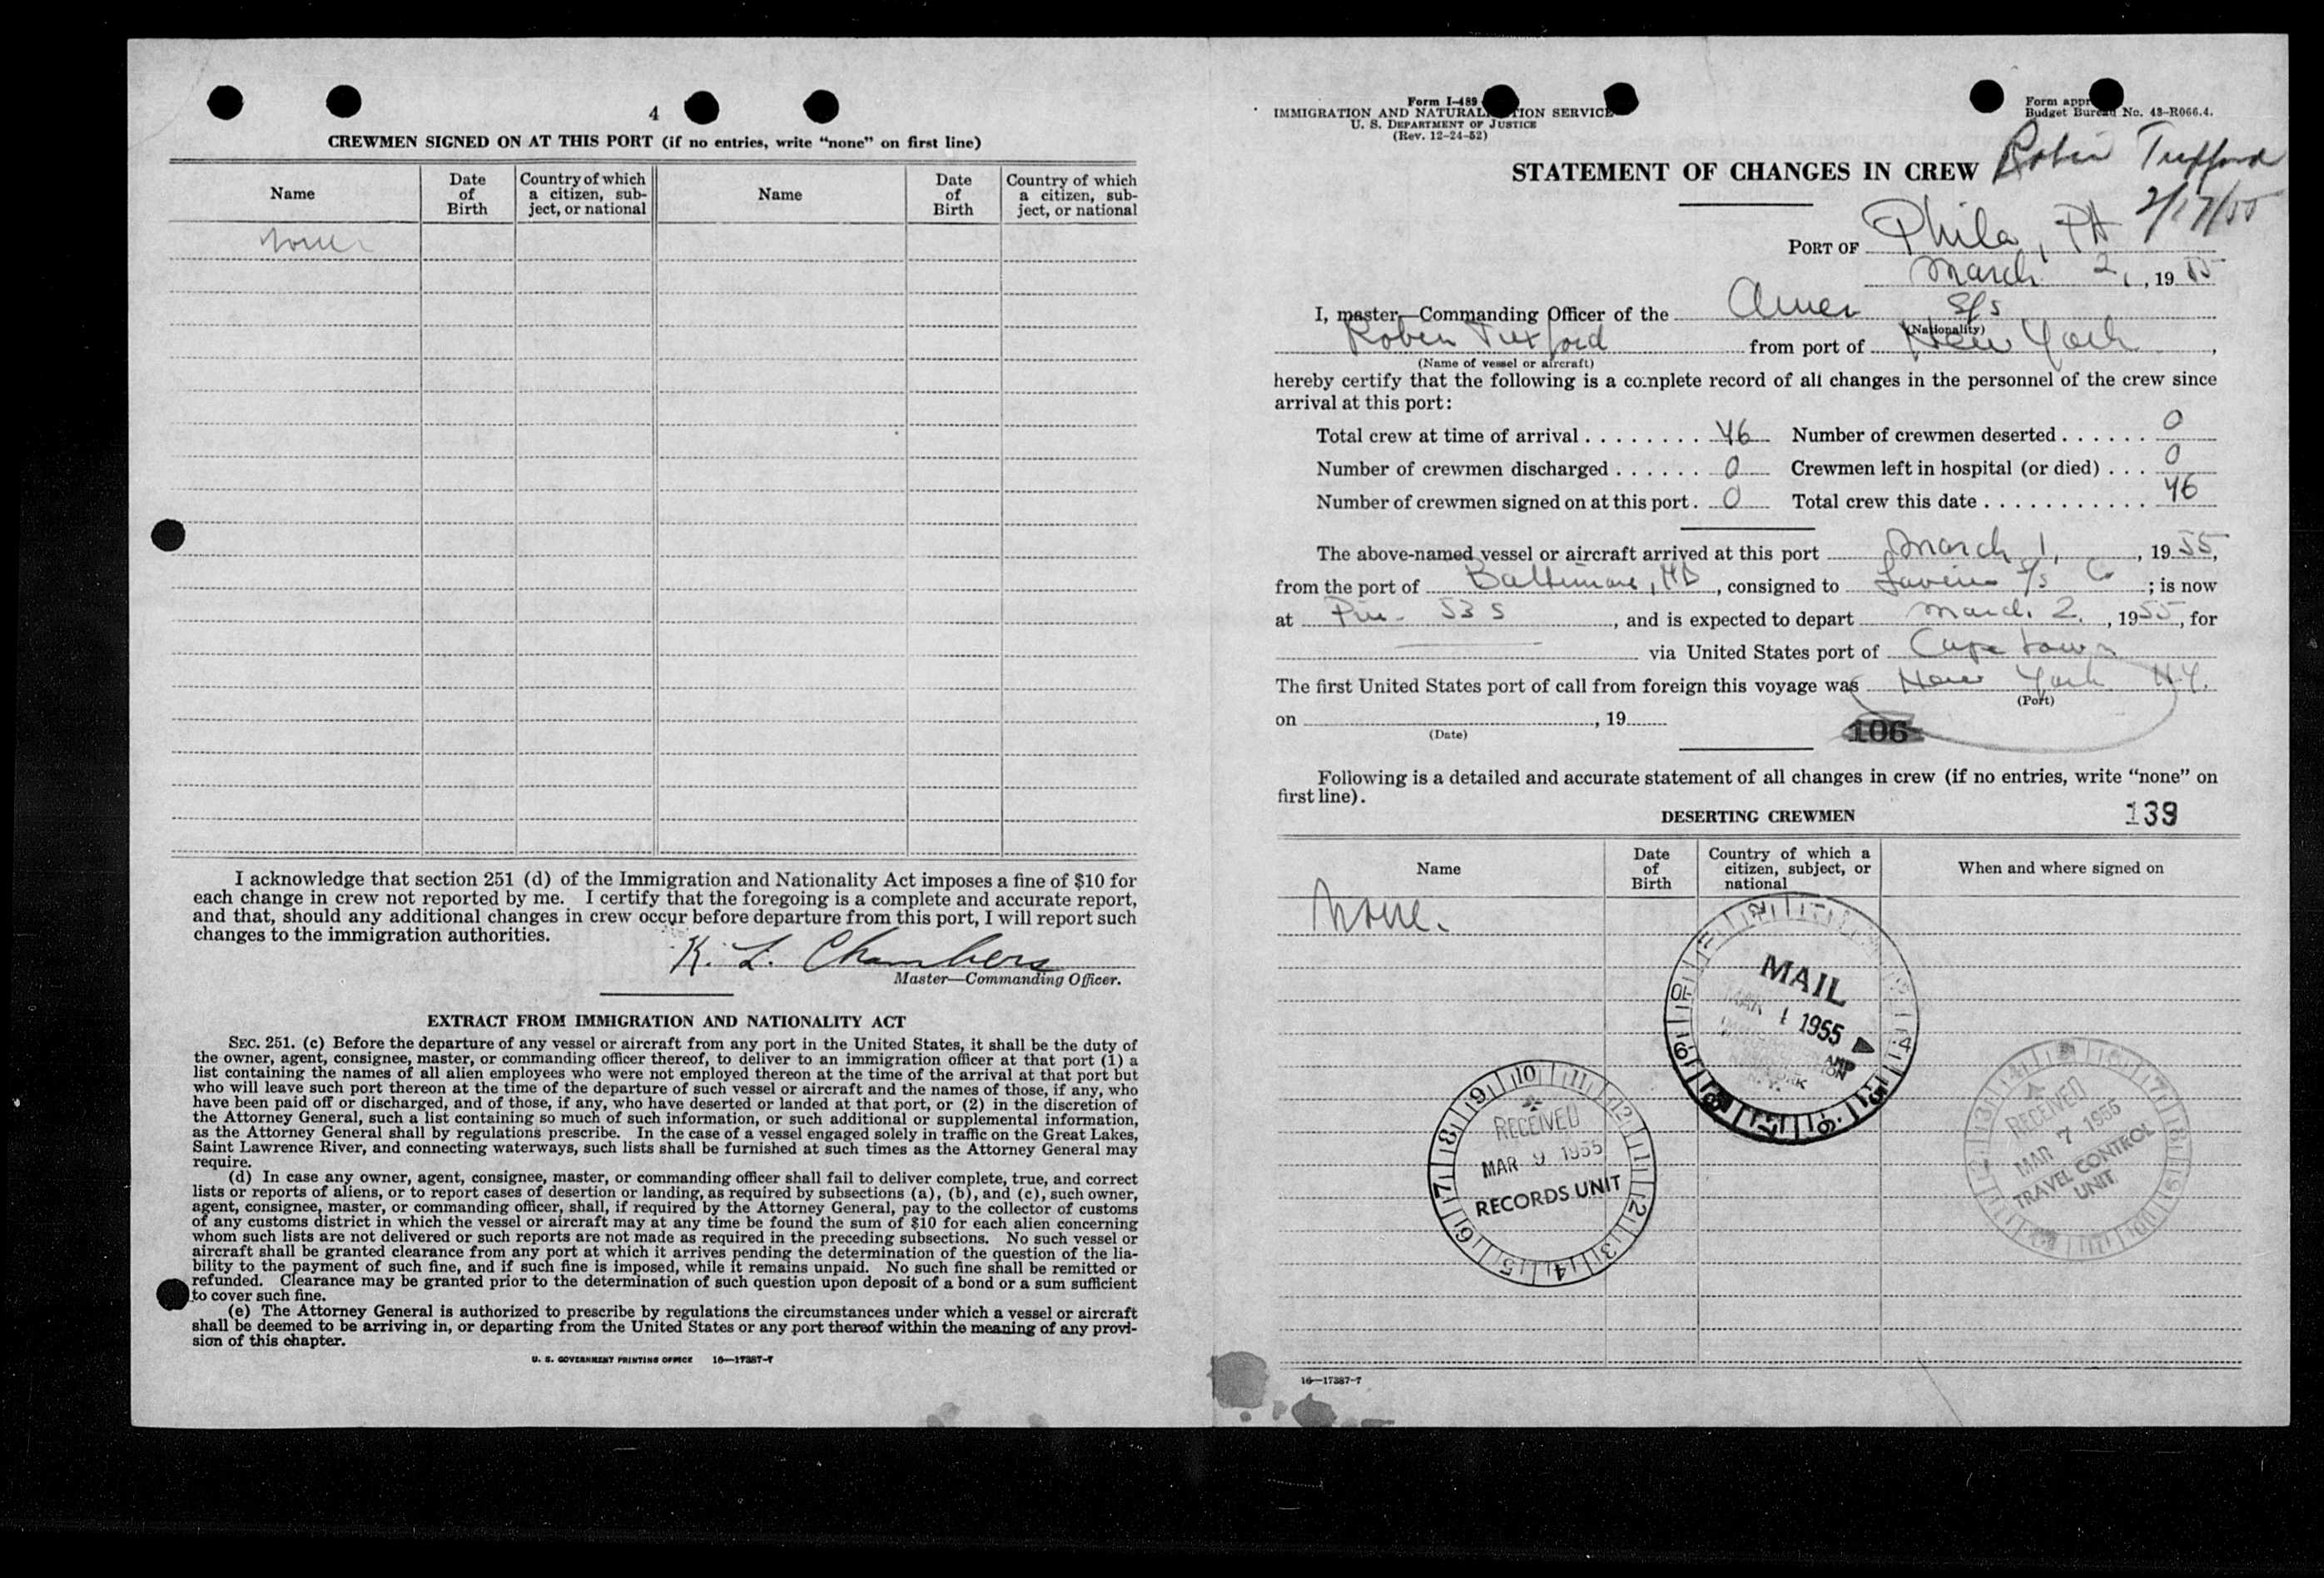 4
CREWMEN SIGNED ON AT THIS PORT (if no entries, write “none” on first line)
Name
Date of Birth
Country of which a citizen, sub-ject, or national
Name
Date of Birth
Country of which a citizen, sub-ject, or national
None
I acknowledge that section 251 (d) of the Immigration and Nationality Act imposes a fine of $10 for
each change in crew not reported by me. I certify that the foregoing is a complete and accurate report,
and that, should any additional changes in crew occur before departure from this port, I will report such
changes to the immigration authorities.
K. L. Chambers
Master—Commanding Officer.
EXTRACT FROM IMMIGRATION AND NATIONALITY ACT
SEC. 251. (c) Before the departure of any vessel or aircraft from any port in the United States, it shall be the duty of
the owner, agent, consignee, master, or commanding officer thereof, to deliver to an immigration officer at that port (1) a
list containing the names of all alien employees who were not employed thereon at the time of the arrival at that port but
who will leave such port thereon at the time of the departure of such vessel or aircraft and the names of those, if any, who
have been paid off or discharged, and of those, if any, who have deserted or landed at that port, or (2) in the discretion of
the Attorney General, such a list containing so much of such information, or such additional or supplemental information,
as the Attorney General shall by regulations prescribe. In the case of a vessel engaged solely in traffic on the Great Lakes,
Saint Lawrence River, and connecting waterways, such lists shall be furnished at such times as the Attorney General may
require.
(d) In case any owner, agent, consignee, master, or commanding officer shall fail to deliver complete, true, and correct
lists or reports of aliens, or to report cases of desertion or landing, as required by subsections (a), (b), and (c), such owner,
agent, consignee, master, or commanding officer, shall, if required by the Attorney General, pay to the collector of customs
of any customs district in which the vessel or aircraft may at any time be found the sum of $10 for each alien concerning
whom such lists are not delivered or such reports are not made as required in the preceding subsections. No such vessel or
aircraft shall be granted clearance from any port at which it arrives pending the determination of the question of the lia-
bility to the payment of such fine, and if such fine is imposed, while it remains unpaid. No such fine shall be remitted or
refunded. Clearance may be granted prior to the determination of such question upon deposit of a bond or a sum sufficient
to cover such fine.
(e) The Attorney General is authorized to prescribe by regulations the circumstances under which a vessel or aircraft
shall be deemed to be arriving in, or departing from the United States or any port thereof within the meaning of any provi-
sion of this chapter.
U. S. GOVERNMENT PRINTING OFFICE 16—17387-7
Form I-489
IMMIGRATION AND NATURALIZATION SERVICE
U. S. DEPARTMENT OF JUSTICE
(Rev. 12-24-52)
Form appr
Budget Bureau No. 43-R066.4.
STATEMENT OF CHANGES IN CREW Robin Tuxford
2/17/55
PORT OF Phila, PA
March 2, , 19 55
I, master—Commanding Officer of the Amer S/s
(Nationality)
Robin Tuxford from port of New York ,
(Name of vessel or aircraft)
hereby certify that the following is a complete record of all changes in the personnel of the crew since
arrival at this port:
Total crew at time of arrival . . . . . . . . 46 Number of crewmen deserted . . . . . . 0
Number of crewmen discharged . . . . . . 0 Crewmen left in hospital (or died) . . . 0
Number of crewmen signed on at this port . 0 Total crew this date . . . . . . . . . . . 46
The above-named vessel or aircraft arrived at this port March 1, , 19 55,
from the port of Baltimore, MD , consigned to S/s Co ; is now
at 53 S , and is expected to depart March 2, , 19 55, for
via United States port of Cape town
The first United States port of call from foreign this voyage was New York N.Y.
(Port)
on , 19
(Date)
106
Following is a detailed and accurate statement of all changes in crew (if no entries, write “none” on
first line).
DESERTING CREWMEN
139
Name
Date of Birth
Country of which a citizen, subject, or national
When and where signed on
None.
MAIL
MAR 1 1955
RECEIVED
MAR 9 1955
RECORDS UNIT
RECEIVED
MAR 7 1955
TRAVEL CONTROL
UNIT
16—17387-7